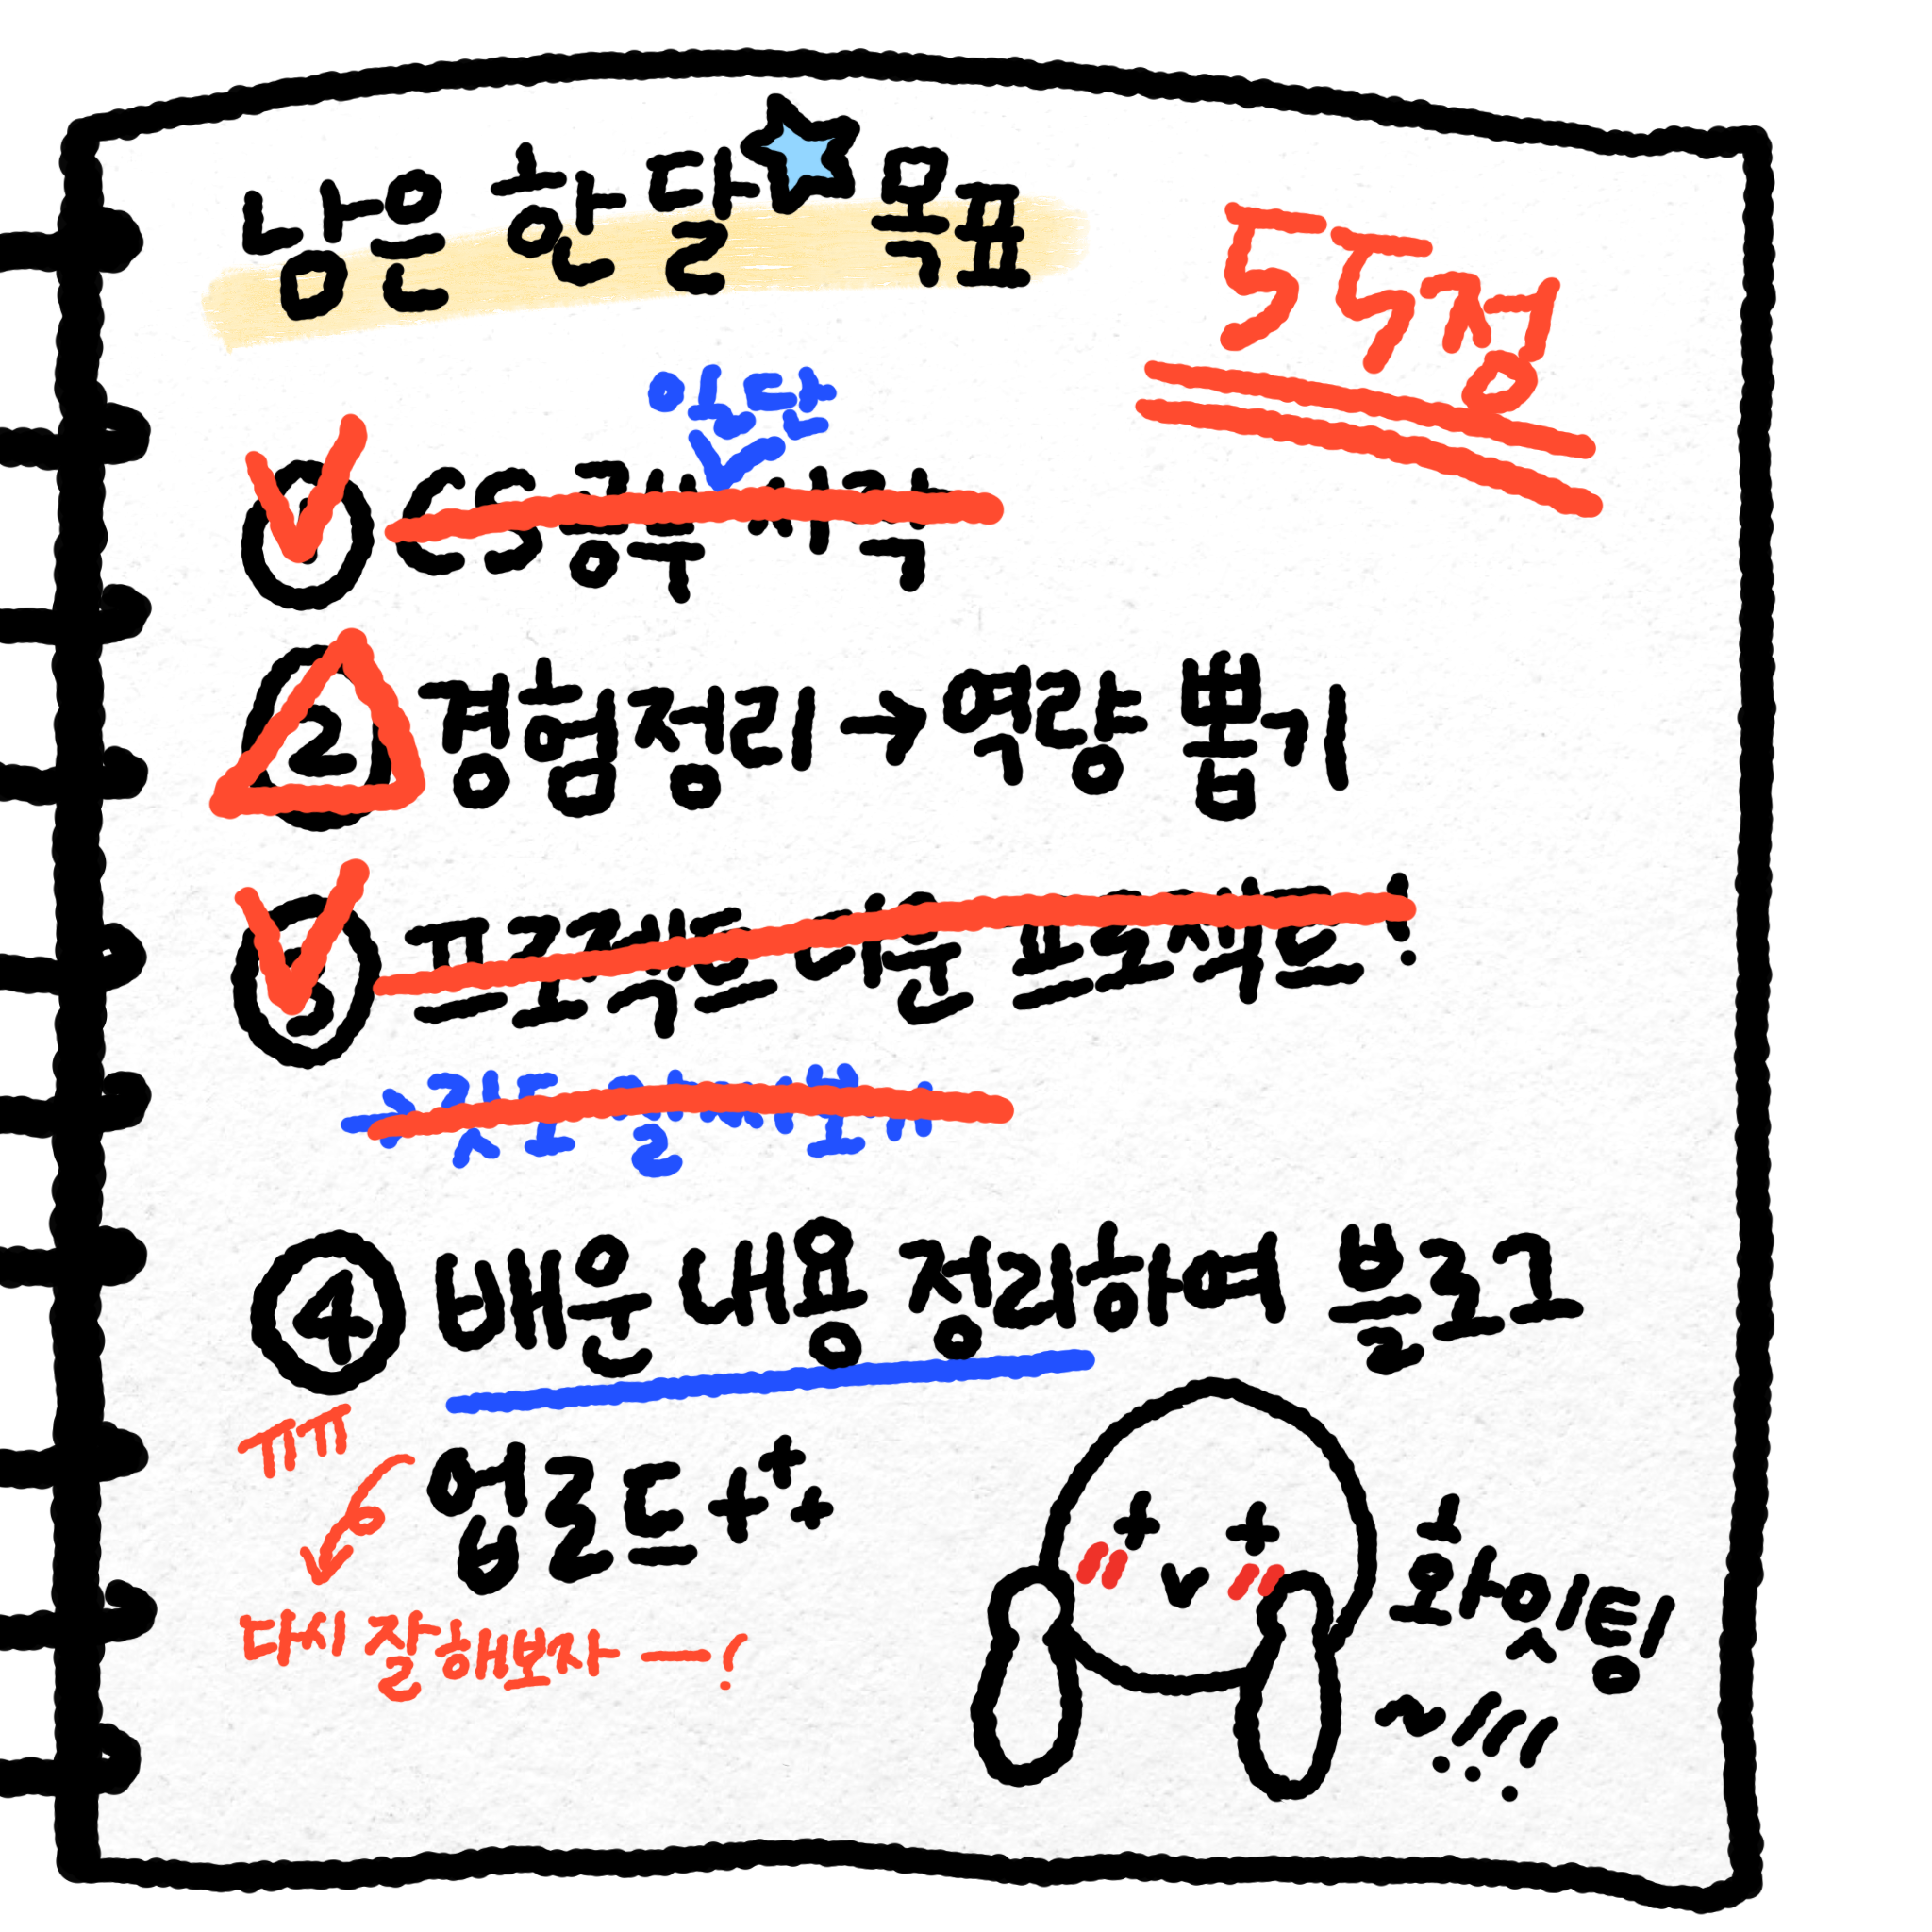 남은 한 달 목표
55점
일단
① CS공부 시작
② 경험정리 → 역량 뽑기
③ 프로젝트 다운 프로젝트!
→ 깃도 잘 써보기
④ 배운 내용 정리하여 블로그
업로드
ㅠㅠ
다시 잘해보자 —!
화잇팅!
~!!!